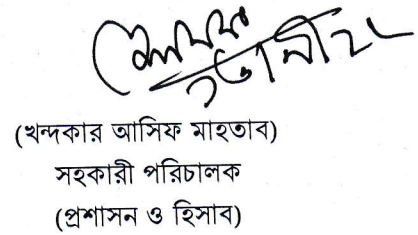 (খন্দকার আসিফ মাহতাব)
সহকারী পরিচালক
(প্রশাসন ও হিসাব)